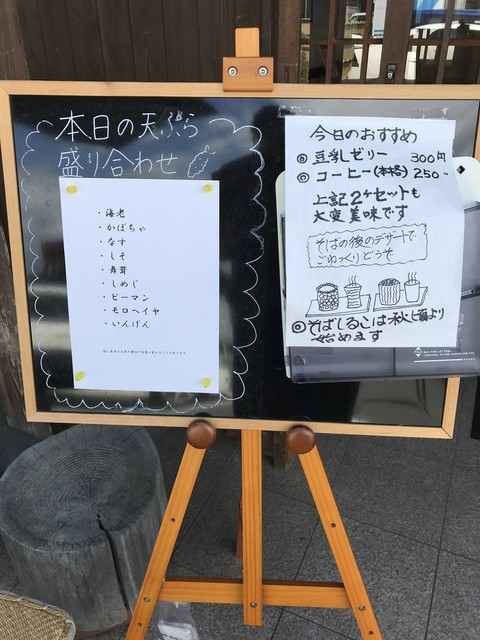 本日の天ぷら
盛り合わせ
・海老
・かぼちゃ
・なす
・しそ
・舞茸
・しめじ
・ピーマン
・モロヘイヤ
・いんげん
今日のおすすめ
◎ 豆乳ゼリー 300円
◎ コーヒー(本格) 250〃
上記2ケセットも
大変美味です
そばの後のデザートで
ごゆっくりどうぞ
◎そばしるこは秋頃より
始めます